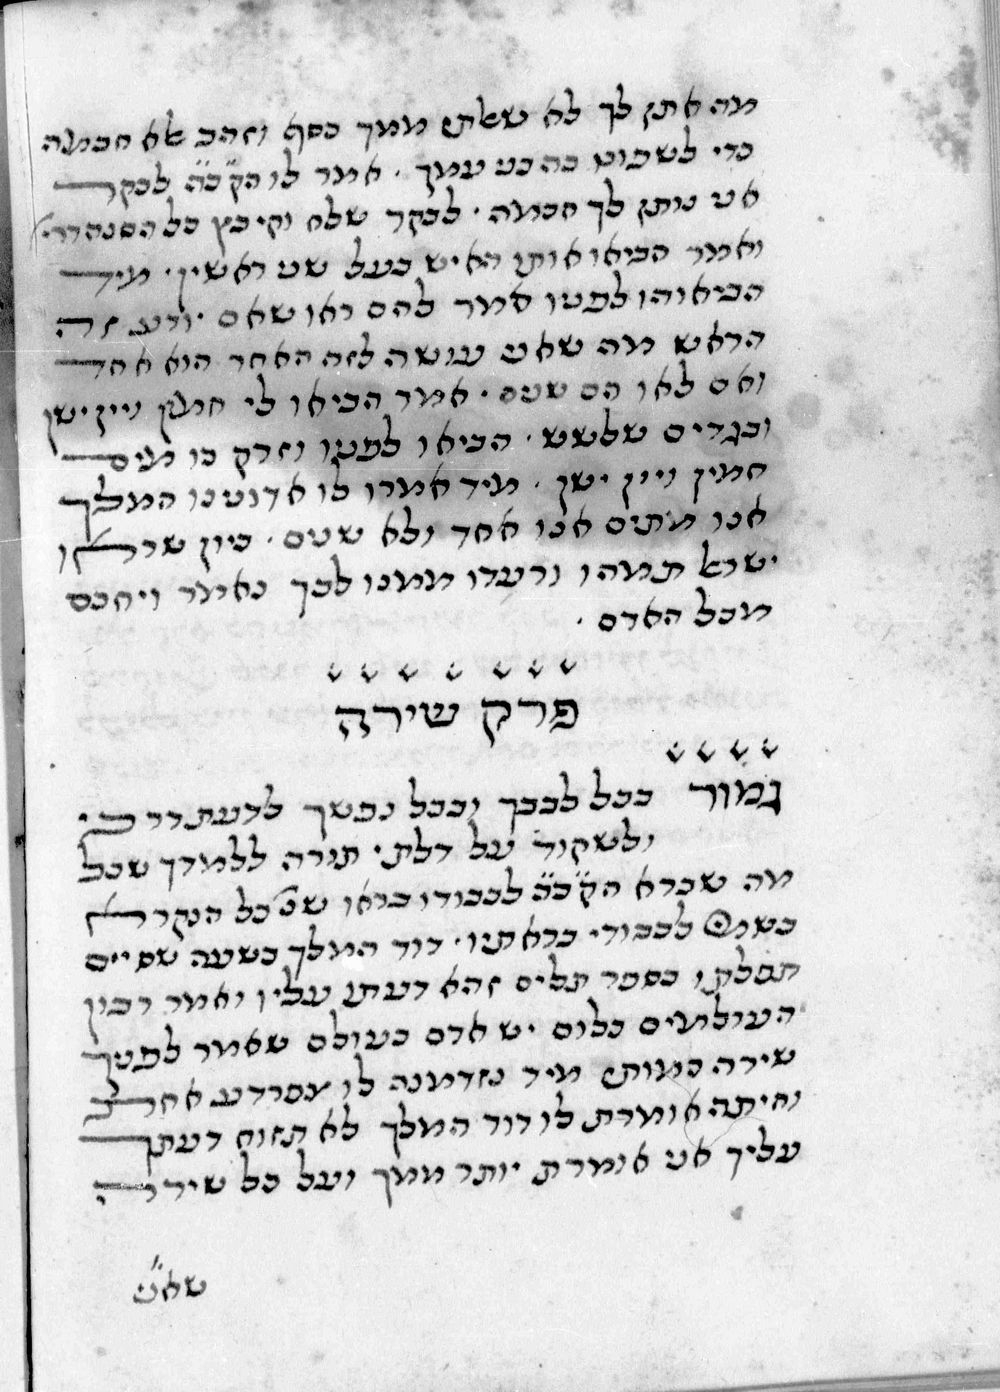 מה אתן לך לא שאלת ממך כסף וזהב אלא חכמה
כדי לשפוט בה בני עמך · אמר לו הק״ב״ה לבקר
אני נותן לך חכמה · לבקר שלח וקיבץ כל הסנהדרי
ואמר הביאו אותו האיש בעל שני ראשין · מיד
הביאוהו לפניו אמר להם ראו שאם יודע זה
הראש מה שאני עושה לזה האחר הוא אחד
ואם לאו הם שנים · אמר הביאו לי חמין ויין ישן
ובגדים שלשש · הביאו לפניו וזרק בו מים
חמין ויין ישן · מיד אמרו לו אדונינו המלך
אנו מתים אנו אחד ולא שנים · כיון שראו
ישראל תמהו ורעדו ממנו לכך נאמר ויחכם
מכל האדם ·
פרק שירה
גמור בכל לבבך ובכל נפשך לדעת דרכי
ולשקוד על דלתי תורה ללמדך שכל
מה שברא הק״ב״ה לכבודו בראו שנ׳ כל הנקרא
בשמי לכבודי בראתיו · דוד המלך בשעה שסיים
תפלתו בספר תלים זהא דעתו עליו ואמר רבון
העולמים כלום יש אדם בעולם שאמר לפניך
שירה כמותי מיד נזדמנה לו צפרדע אחת
והיתה אומרת לו דוד המלך לא תזוח דעתך
עליך אני אומרת יותר ממך ועל כל שירה
שאני